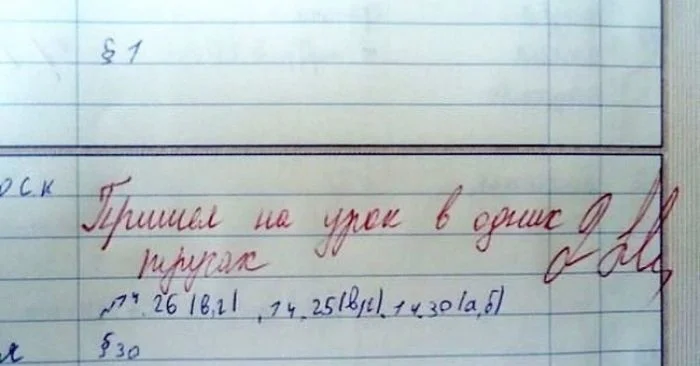 § 1
оск
Пришел на урок в одних 2
трусах
№14.26(в,г), 14.25(в,г), 14.30(а,б)
я §30